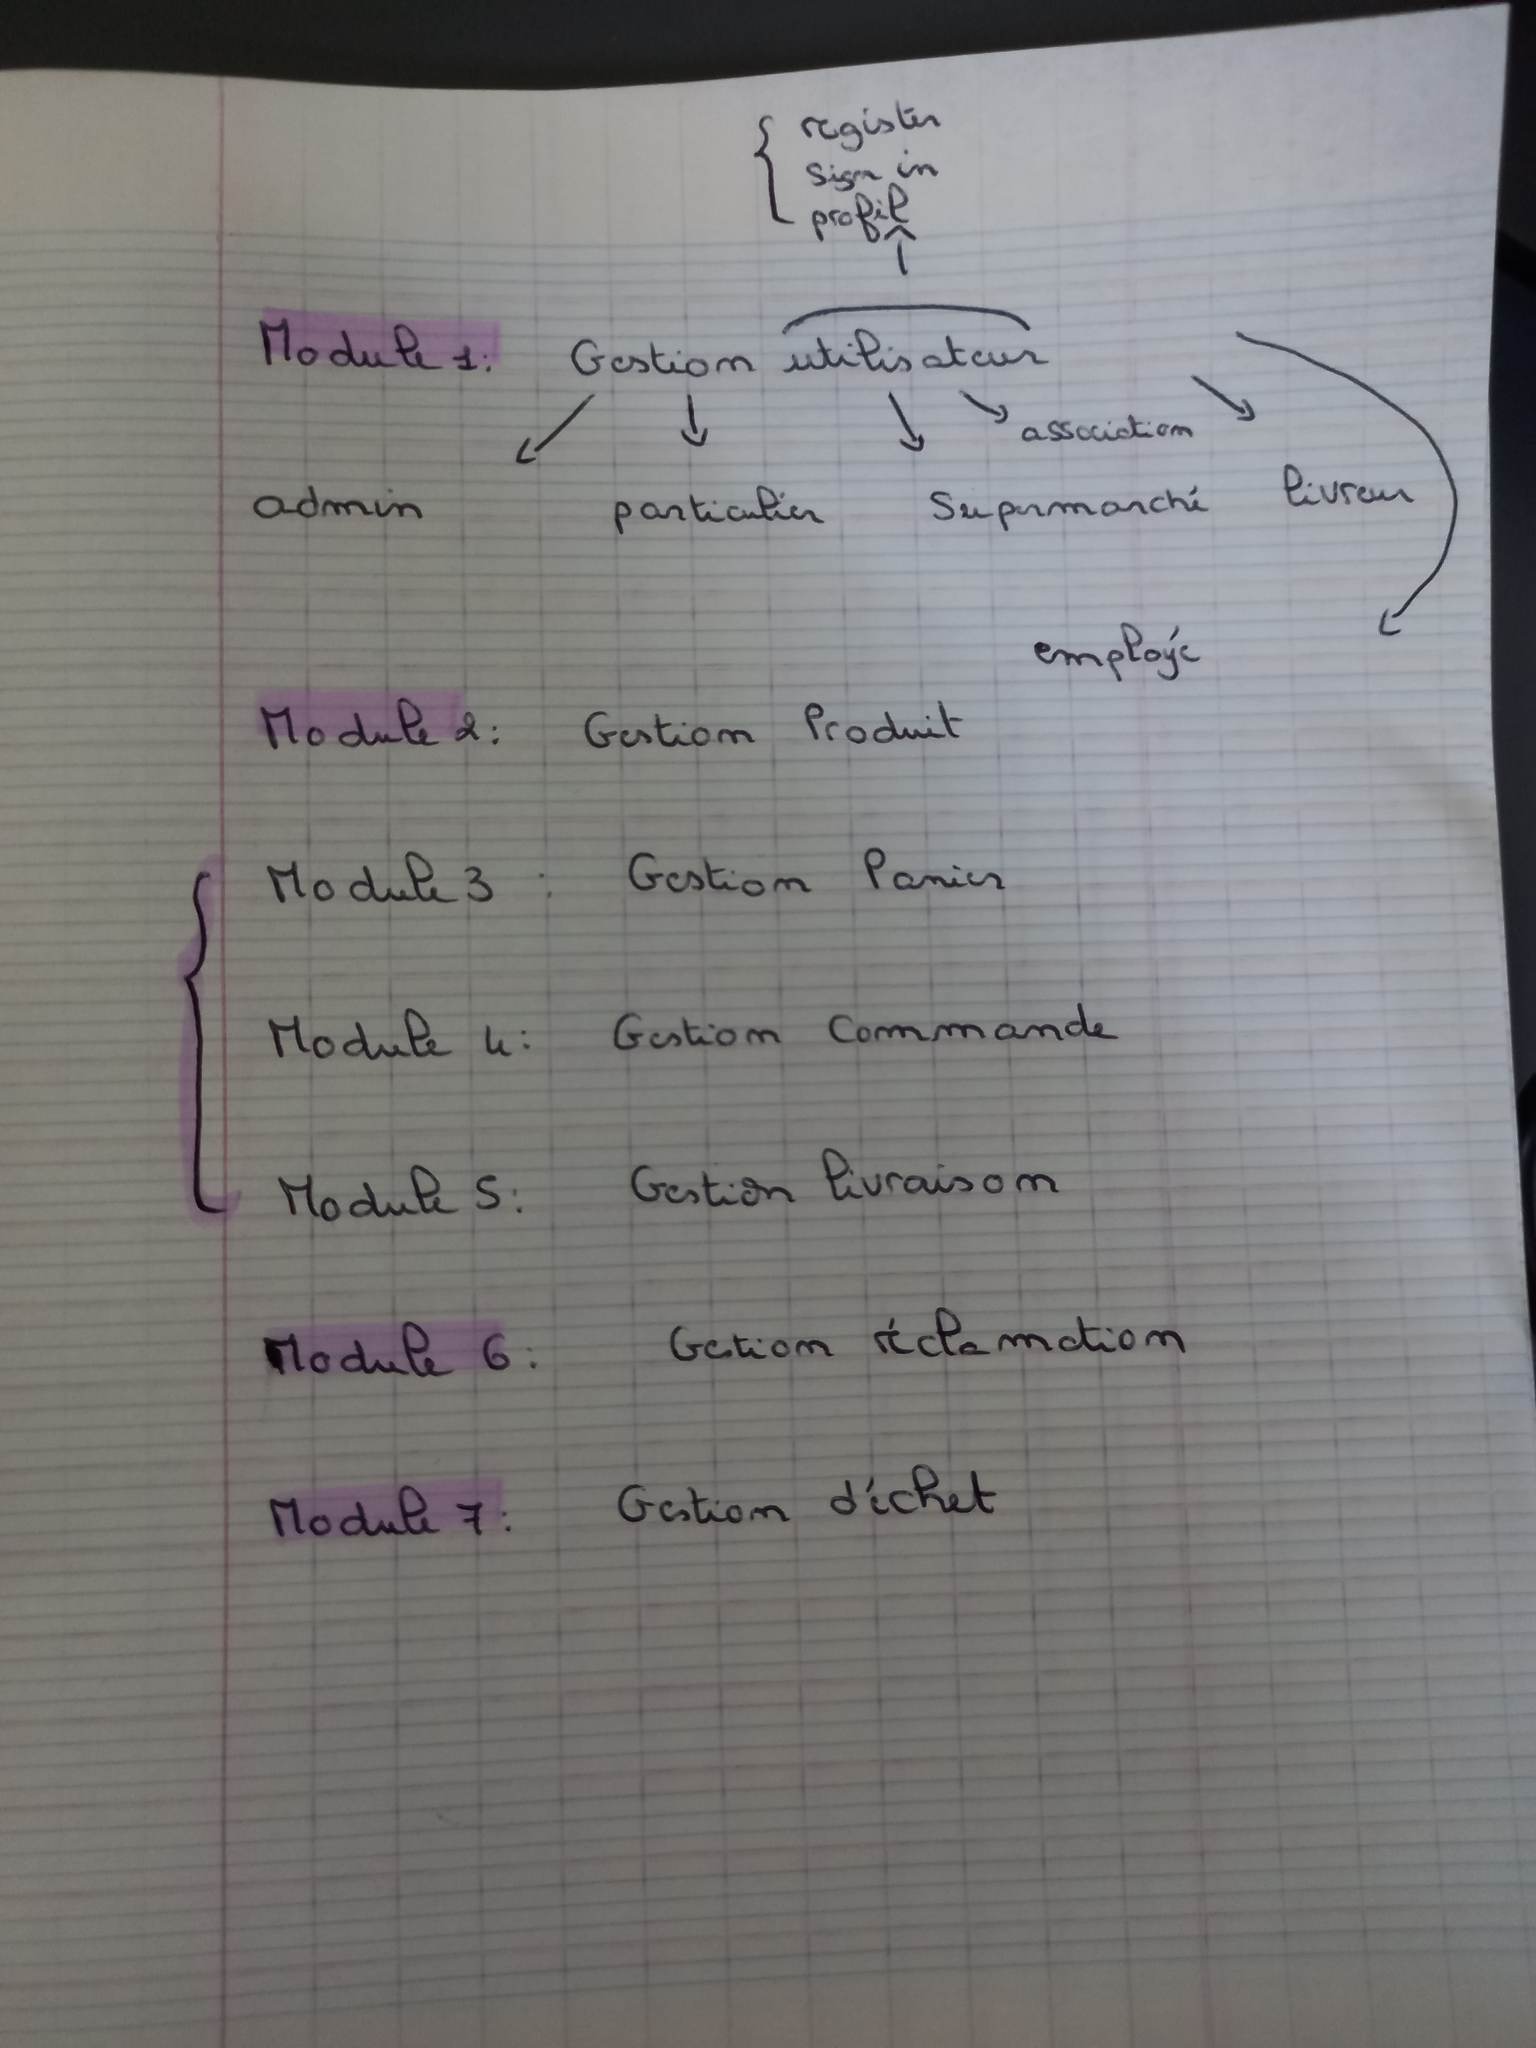 register
sign in
profil
Module 1: Gestion utilisateur
association
admin particulier Supermarché livreur
employé
Module 2: Gestion Produit
Module 3 : Gestion Panier
Module 4: Gestion Commande
Module 5: Gestion livraison
Module 6: Gestion réclamation
Module 7: Gestion déchet